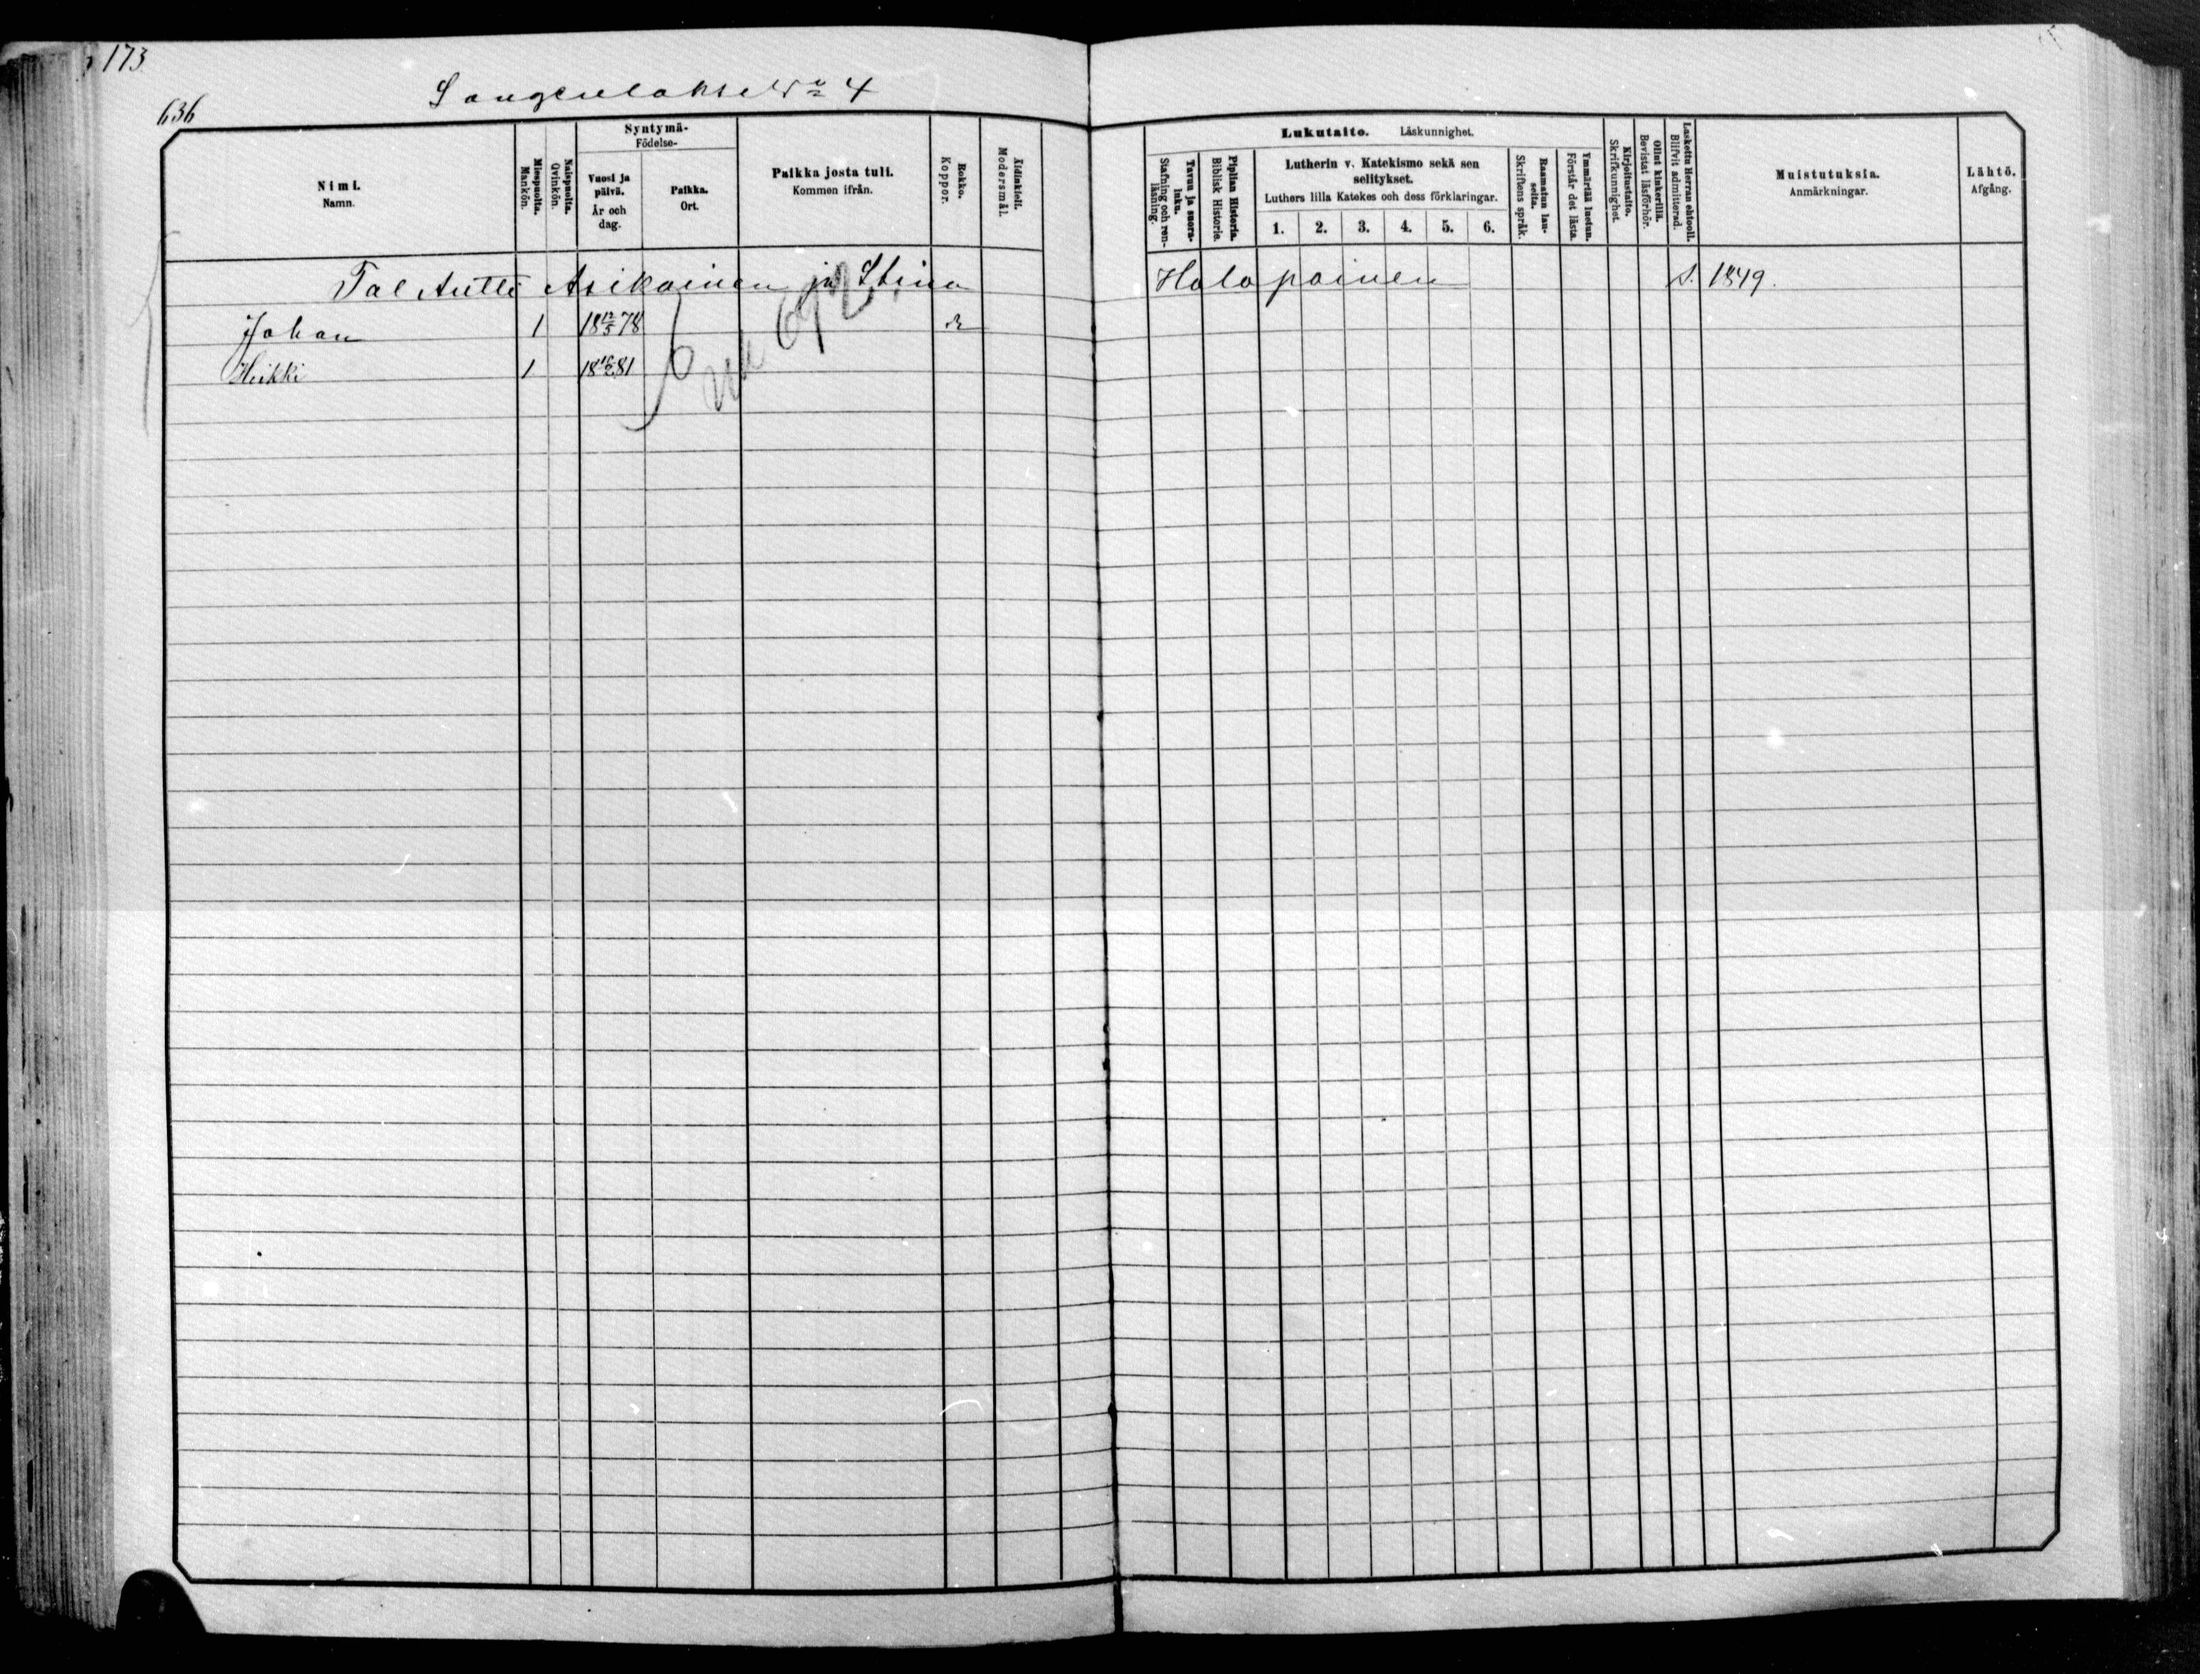 173
636
Saugenlahti No 4
Nimi.
Namn.
Miespuolta.
Mankön.
Naispuolta.
Qvinkön.
Syntymä-
Födelse-
Vuosi ja
päivä.
År och
dag.
Paikka.
Ort.
Paikka josta tuli.
Kommen ifrån.
Rokko.
Koppor.
Äidinkieli.
Modersmål.
Lukutaito. Läskunnighet.
Tavuu ja suora-
luku.
Stafning och ren-
läsning.
Piplian Historia.
Biblisk Historie.
Lutherin v. Katekismo sekä sen
selitykset.
Luthers lilla Katekes och dess förklaringar.
1. 2. 3. 4. 5. 6.
Raamatun lau-
seita.
Skriftens språk.
Ymmärtää luetun.
Förstår det lästa.
Kirjoitustaito.
Skrifkunnighet.
Ollut kinkerillä.
Bevistat läsförhör.
Laskettu Herran ehtool.
Blifvit admitterad.
Muistutuksia.
Anmärkningar.
Lähtö.
Afgång.
Tal Antti Asikainen ja Stina Holopainen s. 1849.
Johan 1 18 12/5 78 r
Heikki 1 18 81
692